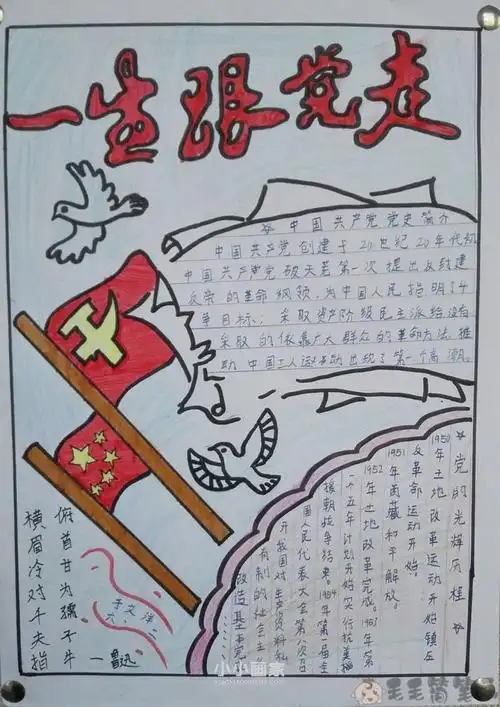 一生跟党走
☆ 中国共产党党史简介
中国共产党创建于20世纪20年代初
中国共产党破天荒第一次提出反封建
反帝的革命纲领，为中国人民指明了斗
争目标；采取资产阶级民主派给没有
采取的依靠广大群众的革命方法，推
助中国工人运动出现了第一个高潮。
☆党的光辉历程☆
1950年土地改革运动开始镇压
反革命运动开始。
1951年西藏和平解放。
1952年土地改革完成。1953年第
一个五年计划开始实行抗美
援朝战争结束1954年第一届全
国人民代表大会第一次召
开我国对生产资料私
有制的社会主
改造基本完
俯首甘为孺子牛
横眉冷对千夫指
—鲁迅
李文洋
六、二
小小画家
毛毛简笔